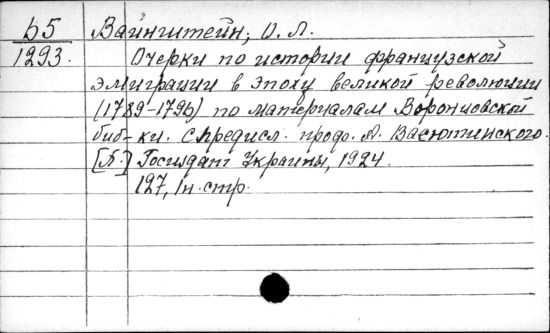 b5 Вайнштейн, О. Л.
1293. Очерки по истории французской
эмиграции в эпоху великой революции
(1789-1796) по материалам Воронцовской
биб-ки. С предисл. проф. А. Васютинского.
Госиздат Украины, 1924.
127, 1н. стр.